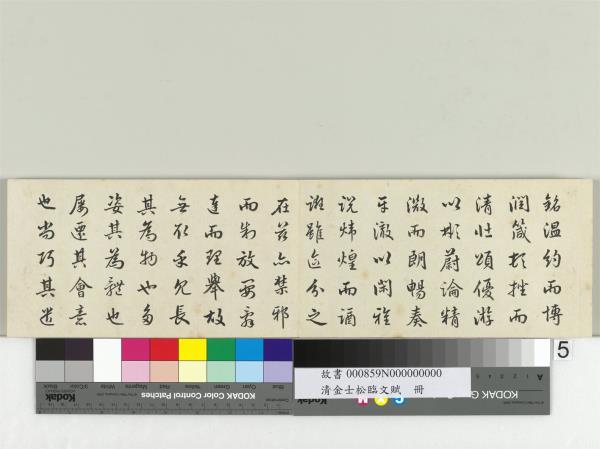 銘温約而博
潤箴頓挫而
清壯頌優游
以彬蔚論精
微而朗暢奏
平澈以閑雅
説煒煌而譎
誑雖區分之
在茲亦禁邪
而制放要辭
達而理舉故
無取乎冗長
其為物也多
姿其為體也
屢遷其會意
也尚巧其遣
5
故書 000859N000000000
清金士松臨文賦 冊
KODAK Color Control Patches
Kodak
Blue
Cyan
Green
Yellow
Red
Magenta
White
3/Color
Black